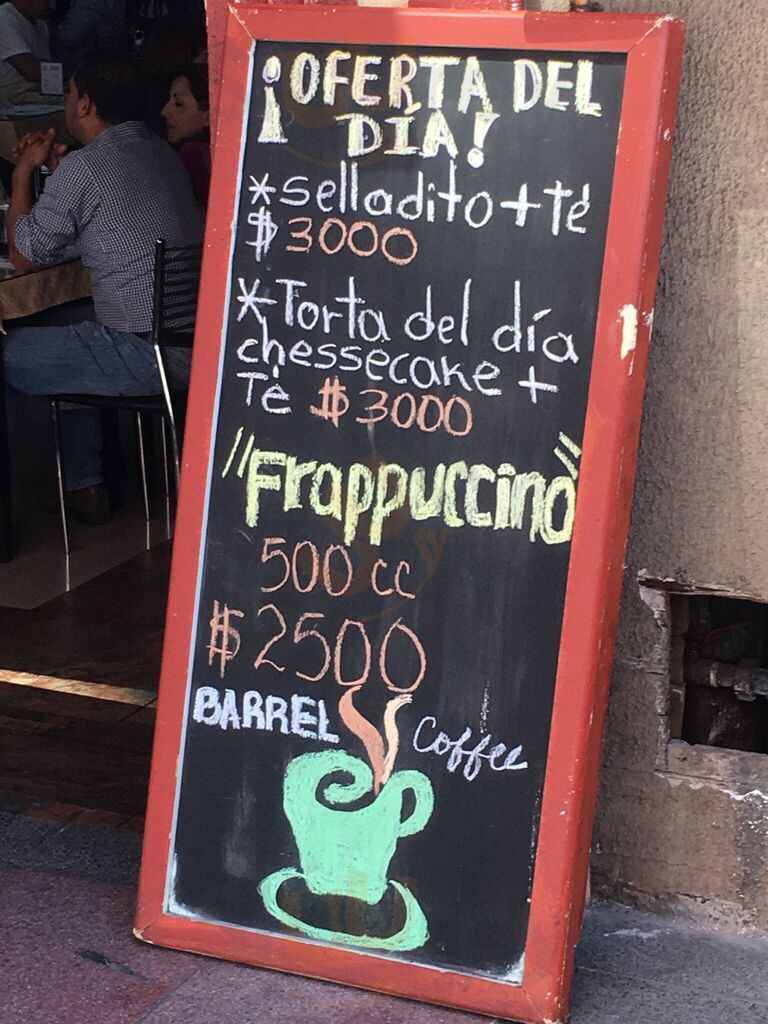 ¡OFERTA DEL
DÍA!
*selladito + té
$3000
*Torta del día
chessecake +
Té $3000
"Frappuccino"
500 cc
$2500
BARREL Coffee